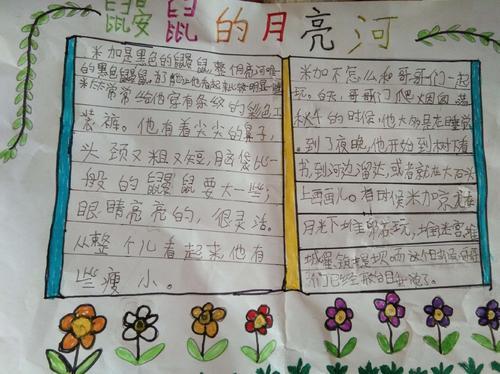 鼹鼠的月亮河
米加是黑色的鼹鼠,整个月亮河唯一
的黑色鼹鼠,
常常给他穿有条纹的彩色工
装裤。他有着尖尖的鼻子,
头颈又粗又短,脑袋比一
般的鼹鼠要大一些;
眼睛亮亮的,很灵活。
从整个儿看起来他有
些瘦小。
米加不怎么和哥哥们一起
玩。白天,哥哥们爬烟囱、荡
秋千的时候,他大多是在睡觉
。到了夜晚,他开始到树下看
书,到河边溜达,或者就在大石头
上画画儿。有时候米加
月光下堆卵石玩,堆迷宫堆
城堡